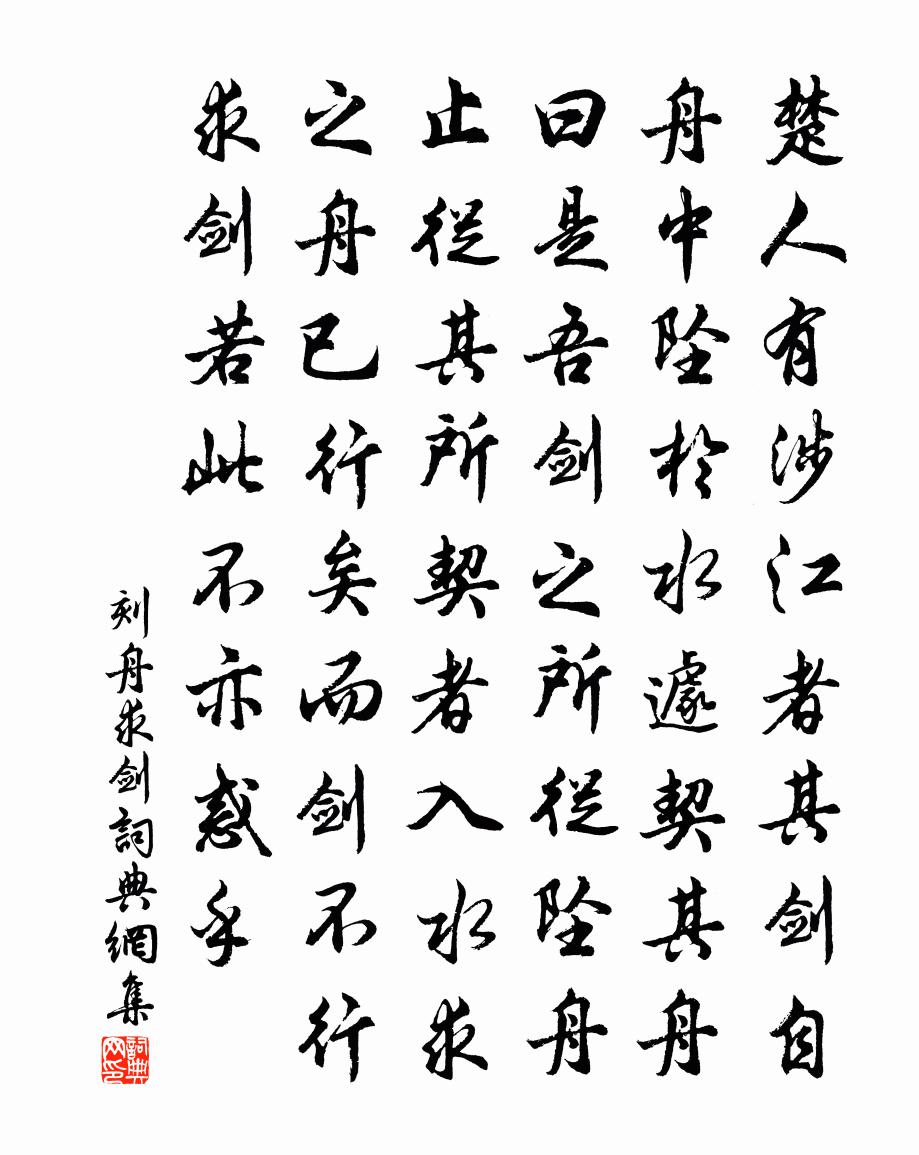 楚人有涉江者其剑自
舟中坠於水遽契其舟
曰是吾剑之所從坠舟
止從其所契者入水求
之舟已行矣而剑不行
求剑若此不亦惑乎
刻舟求剑詞典網集
詞典网印